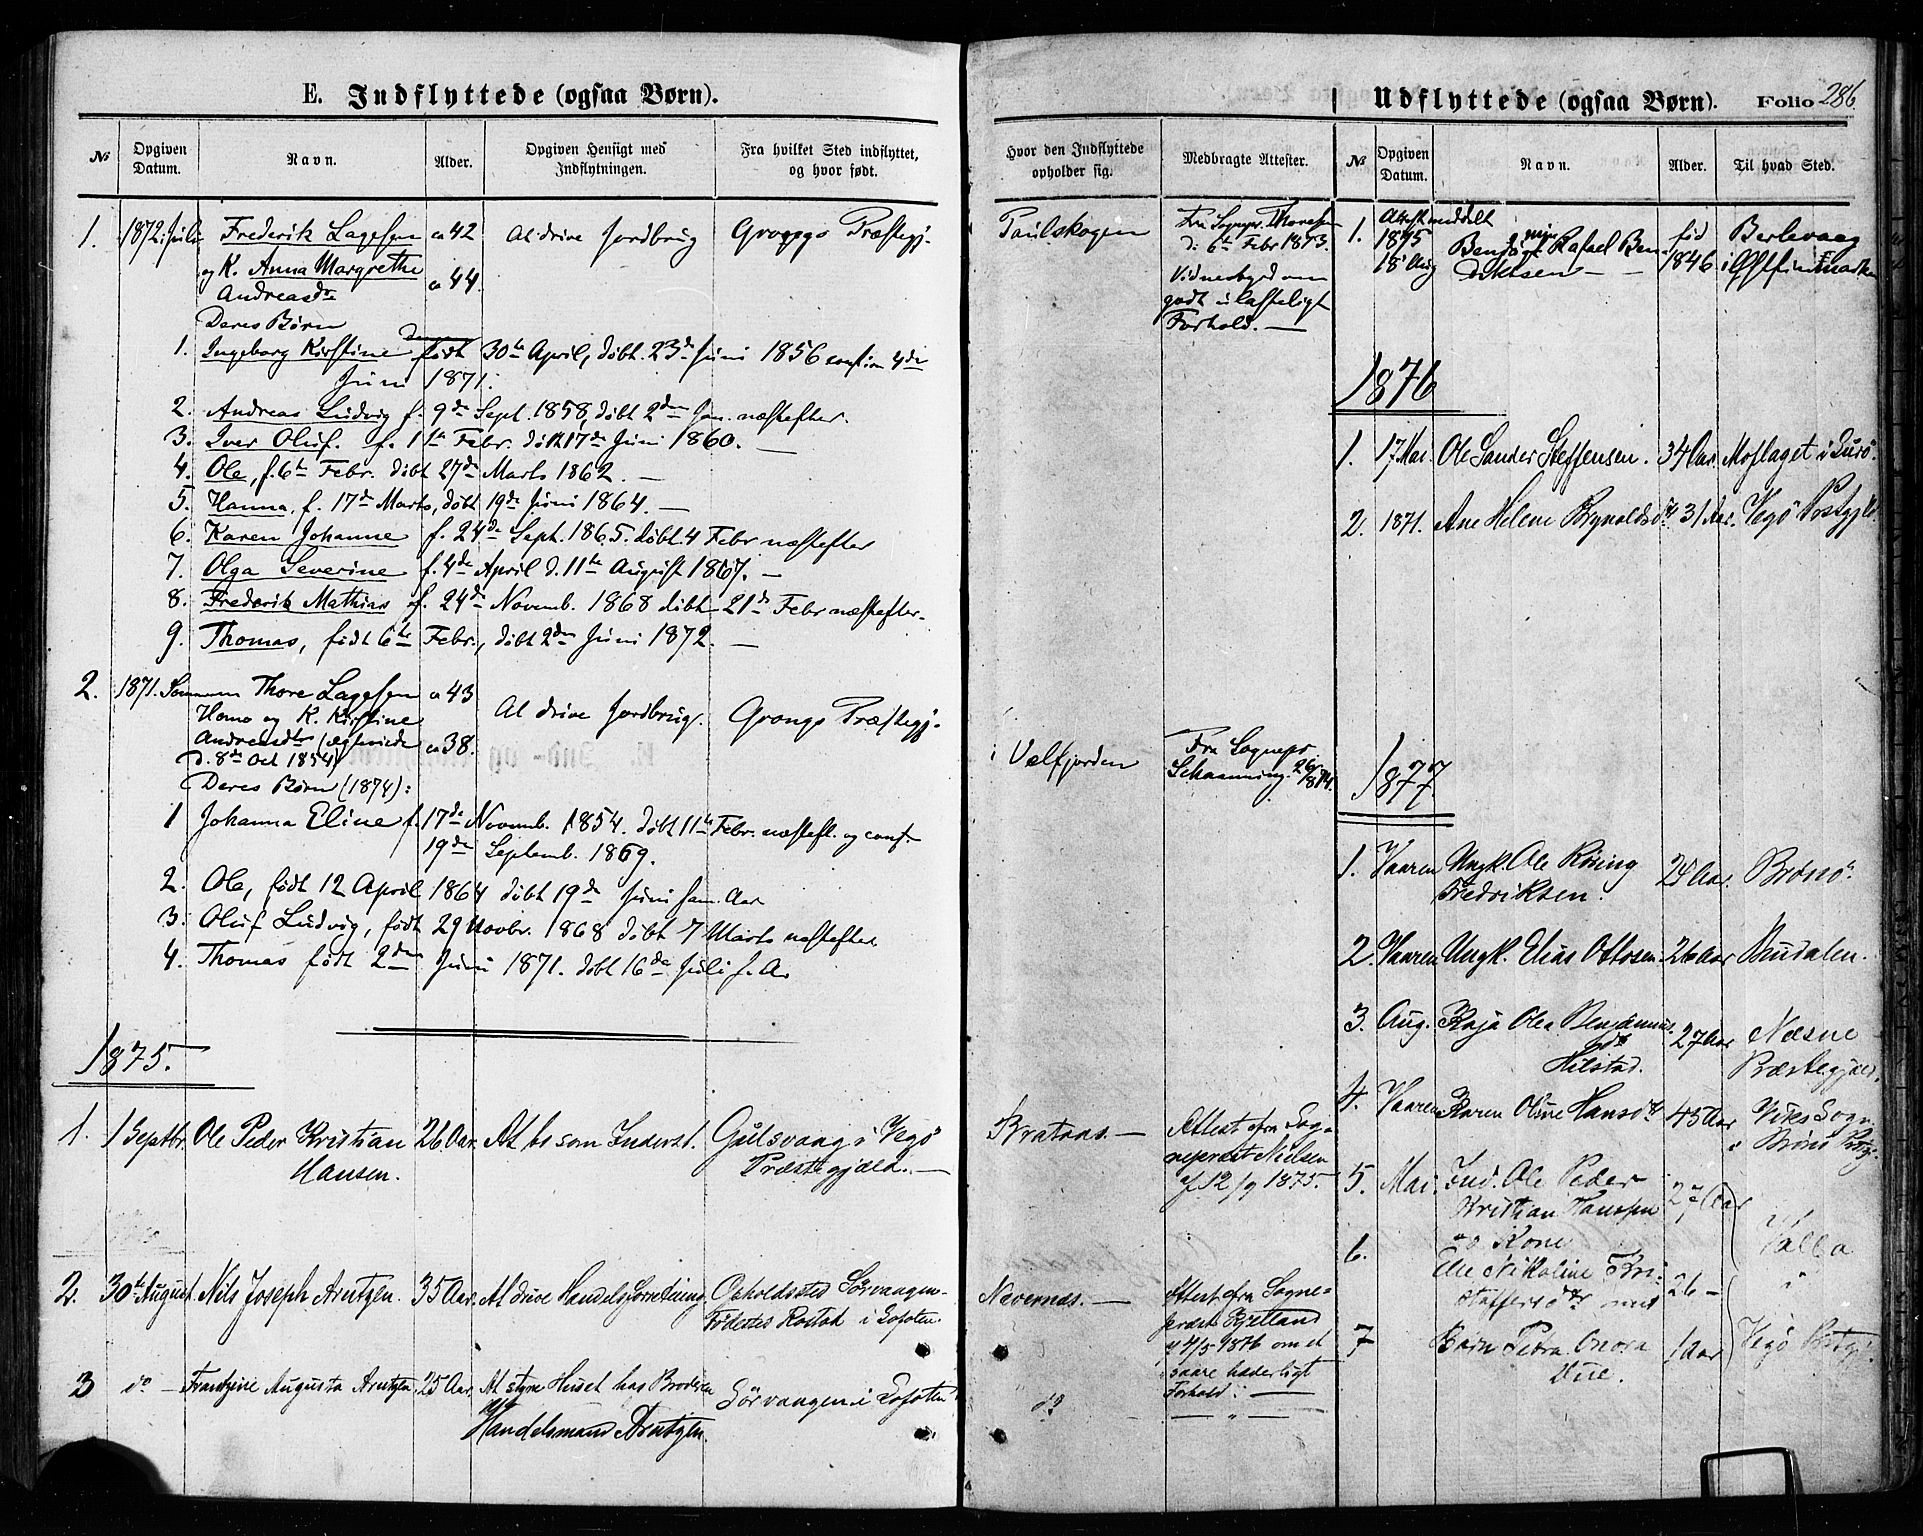 E. Indflyttede (ogsaa Børn).
№
Opgiven Datum.
Navn.
Alder.
Opgiven Hensigt med Indflytningen.
Fra hvilket Sted indflyttet, og hvor født.
1. 1872. Juli Frederik Lagesen a 42 At drive Jordbrug Grongs Præstegj.
og K. Anna Margrethe
Andreasdr a 44.
Deres Børn
1. Ingeborg Kirstine født 30te April, døbt 23de Juni 1856 confirm 4de
Juni 1871.
2. Andreas Ludvig f. 9de Sept. 1858, døbt 2den Jan. næstefter.
3. Iver Oluf. f. 1te Febr. døbt 17de Juni 1860.
4. Ole, f. 6te Febr. døbt 27de Marts 1862. —
5. Hanna, f. 17de Marts, døbt 19de Juni 1864. —
6. Karen Johanne f. 24de Sept. 1865. døbt 4 Febr næstefter
7. Olga Severine f. 4de April d. 11te August 1867. —
8. Frederik Mathias f. 24de Novemb. 1868 døbt 21de Febr næstefter.
9. Thomas, født 6te Febr., døbt 2den Juni 1872. —
2. 1871. Thore Lagesen a 43
Homo og K. Kirstine At drive Jordbrug. Grongs Præstegj.
Andreasdtr (ægteviede a 38.
d. 8de Oct 1854)
Deres Børn (1874):
1 Johanna Eline f. 17de Novemb. 1854. døbt 11te Febr. næsteft. og conf.
19de Septemb. 1869.
2. Ole, født 12 April 1864 døbt 19de Juni sam. Aar
3. Oluf Ludvig, født 29 Novbr. 1868 døbt 7 Marts næstefter
4. Thomas født 2den Juni 1871. døbt 16de Juli s. A.
1875.
1. 1 Septbr. Ole Peder Kristian 26 Aar. At bo som Inderst. Gulsvaag i Vegø
Hansen. Præstegjæld. —
2. 30te August. Nils Joseph Arntzen. 35 Aar. At drive Handelsforretning. Opholdssted Sörvaagen.
Födested Rostad i Lofoten.
3 do — Frantzine Augusta Arntzen, 25 Aar. At styre Huset hos Broderen Sörvaagen i Lofoten
Handelsmand Arntzen.
Hvor den Indflyttede opholder sig.
Medbragte Attester.
Paulskogen
Fra Sognepr.
d. 6te Febr 1873.
Vidnesbyrd om
godt u lasteligt
Forhold. —
i Velfjorden
Fra Sognepr
Bratnas. —
Attest fra Sog-
neprest Nielsen
af 12/9 1875.
Navernas. —
Attest fra Sogne-
prest
af 4/5 1876 om et
saare hæderligt
Forhold. —
do
— " —
Udflyttede (ogsaa Børn). Folio 286
№
Opgiven Datum.
Navn.
Alder.
Til hvad Sted.
1. Attest meddelt
1875 Rafael Ben- fød Berlevaag
18 Aug diktsen — 1846 i Østfinmarken
1876
1. 17 Mai. Ole Sander Steffensen. 34 Aar i Lurø.
2. 1871. Ane Helene Brynoldsdr 31 Aar. Vegø Pstgjld.
1877
1. Vaaren Ungk. Ole Rösing 24 Aar. Brønø
Fredriksen.
2. Vaaren Ungk. Elias Ottosen 26 Aar
3. Aug. Kaja Olea Benjamins- 27 Aar Næsne
dr Præstegjæld.
Hilstad.
4. Vaaren Karen Oline Hansdr 45 Aar Viks Sogn
i Brønø Pstgj.
5. Mai. Ind. Ole Peder 27 Aar
Kristian Hanssen Valla
6. og Kone
Ane Nikoline Kri- 26 — "
stoffersdtr med
7 Barn Petra Onora 1 Aar Vegø Pstgj.